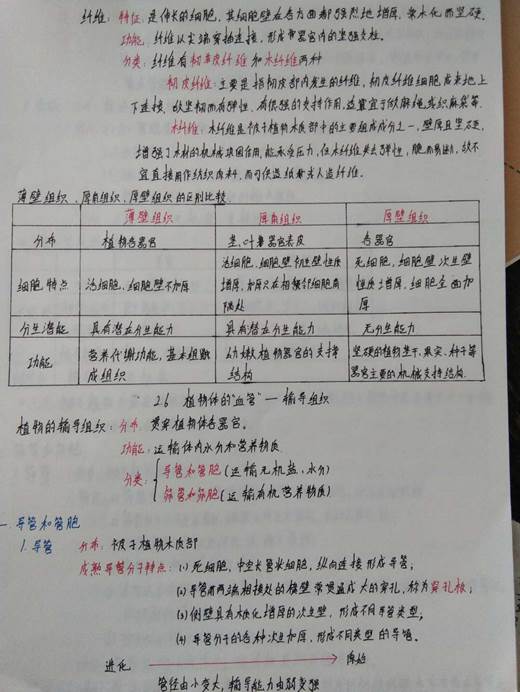 纤维: 特征: 是伸长的细胞, 其细胞壁在各方面都强烈地增厚, 常木化而坚硬.
功能: 纤维以尖端穿插连接, 形成常器官内的坚强支柱.
分类: 纤维有韧皮纤维和木纤维两种
韧皮纤维: 主要是指韧皮部内发生的纤维, 韧皮纤维细胞
下连接, 故坚韧而有弹性, 有很强的支持作用, 适宜于
木纤维: 木纤维是被子植物木质部中的主要组成成分之一, 壁厚且坚硬,
增强了木材的机械巩固作用, 能承受压力, 但木纤维失去弹性, 脆而易断, 故不
宜直接用作纺织原料, 而可供造纸和人造纤维.
薄壁组织、厚角组织、厚壁组织的区别比较.
薄壁组织 厚角组织 厚壁组织
分布 植物各器官 茎、叶等器官表皮 各器官
细胞特点 活细胞、细胞壁不加厚 活细胞、细胞壁初生壁性质增厚, 加厚只在相邻细胞角隅处 死细胞, 细胞壁次生壁性质增厚, 细胞全面加厚
分生潜能 具有潜在分生能力 具有潜在分生能力 无分生能力
功能 营养代谢功能, 基本组成组织 幼嫩植物器官的支持结构 坚硬的植物茎干、果实、种子等器官主要的机械支持结构.
2.6 植物体的"血管"— 输导组织
植物的输导组织: 分布: 贯穿植物体各器官。
功能: 运输体内水分和营养物质
分类: 导管和管胞(运输无机盐、水分)
筛管和筛胞(运输有机营养物质)
一 导管和管胞
1. 导管 分布: 被子植物木质部
成熟导管分子特点: (1) 死细胞, 中空长管状细胞, 纵向连接形成导管;
(2) 导管两端相接处的横壁常贯通成大的穿孔, 称为穿孔板;
(3) 侧壁具有木质化增厚的次生壁, 形成不同导管类型;
(4) 导管分子的各种次生加厚, 形成不同类型的导管。
进化 → 原始
管径由小变大, 输导能力由弱变强